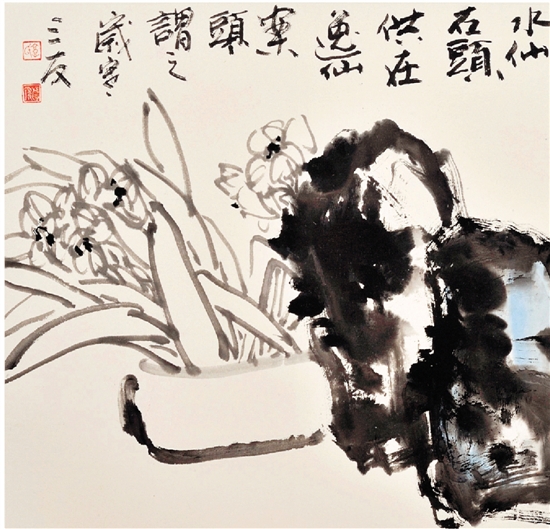 水仙
石頭
供在
逸仙
案
頭
謂之
歲寒
三友